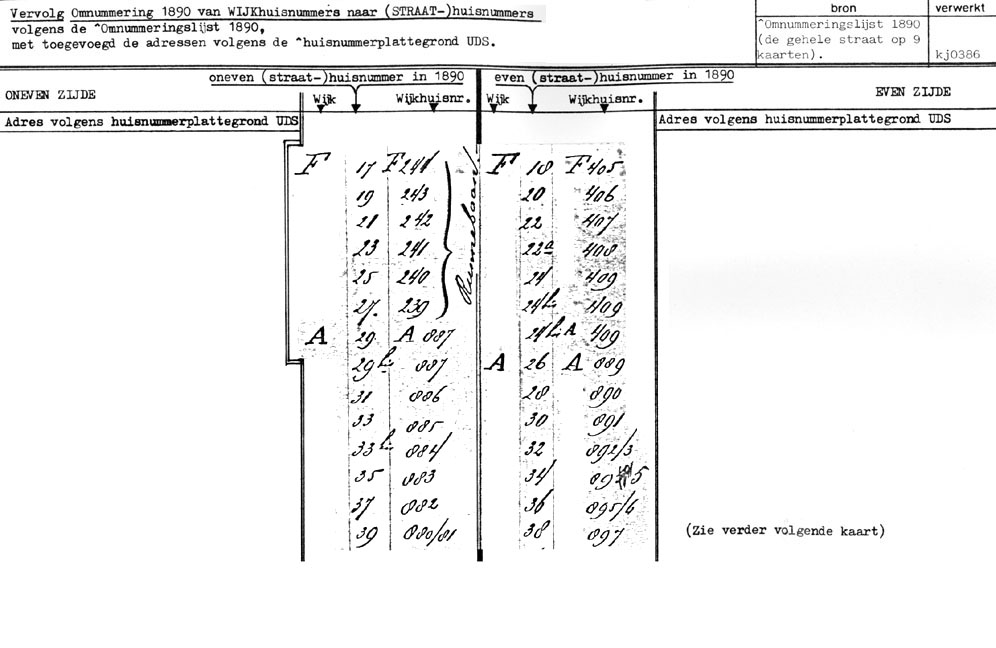 Vervolg Omnummering 1890 van WIJKhuisnummers naar (STRAAT-)huisnummers
volgens de ^Omnummeringslijst 1890,
met toegevoegd de adressen volgens de ^huisnummerplattegrond UDS.
bron
verwerkt
^Omnummeringslijst 1890
(de gehele straat op 9
kaarten).
kj0386
oneven (straat-)huisnummer in 1890
even (straat-)huisnummer in 1890
ONEVEN ZIJDE
Wijk
Wijkhuisnr.
Wijk
Wijkhuisnr.
EVEN ZIJDE
Adres volgens huisnummerplattegrond UDS
Adres volgens huisnummerplattegrond UDS
F 17 F F 18 F 405
19 243 20 406
21 242 22 407
23 241 408
25 240 24 409
27. 239 24 409
A 29 A 887 24 A 409
29 887 A 26 A 889
31 886 28 890
33 885 30 891
33 884 32 892/3
35 883 34
37 882 36 895/6
39 880/81 38 897
(Zie verder volgende kaart)